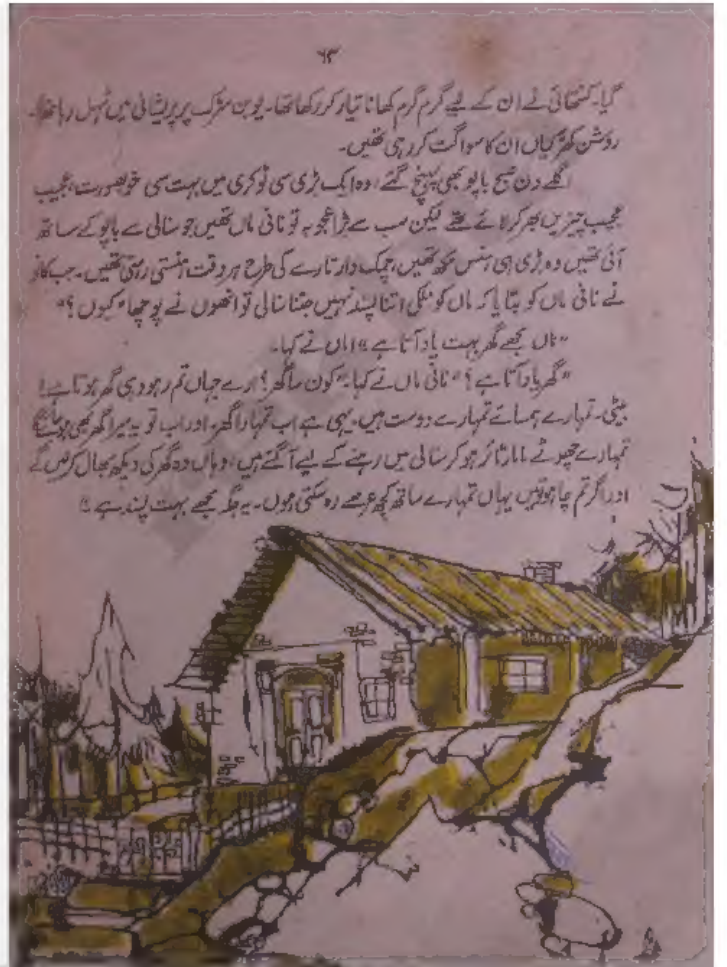 ۶۳
گیا۔ کنتھائی نے ان کے لیے گرم گرم کھانا تیار کر رکھا تھا۔ یوبن سڑک پر پریشانی میں ٹہل رہا تھا۔
روشن کھڑکیاں ان کا سواگت کر رہی تھیں۔
اگلے دن صبح بابو بھی پہنچ گئے، وہ ایک بڑی سی ٹوکری میں بہت سی خوبصورت، عجیب
عجیب چیزیں بھر کر لائے تھے لیکن سب سے بڑا عجوبہ تو نانی ماں تھیں جو سنالی سے بابو کے ساتھ
آئی تھیں وہ بڑی ہی ہنس مکھ تھیں، چمک دار تارے کی طرح ہر وقت ہنستی رہتی تھیں۔ جب کانو
نے نانی ماں کو بتایا کہ ماں کو منکی اتنا پسند نہیں جتنا سنالی تو انھوں نے پوچھا "کیوں ؟"
"ماں مجھے گھر بہت یاد آتا ہے" اماں نے کہا۔
"گھر یاد آتا ہے ؟" نانی ماں نے کہا۔ "کون سا گھر؟ ارے جہاں تم رہو وہی گھر ہوتا ہے!
بیٹی۔ تمہارے ہمسائے تمہارے دوست ہیں۔ یہی ہے اب تمہارا گھر۔ اور اب تو یہ میرا گھر بھی ہو سکتا
تمہارے چھوٹے ماما ریٹائر ہو کر سنالی میں رہنے کے لیے آ گئے ہیں، وہاں وہ گھر کی دیکھ بھال کریں گے
اور اگر تم چاہو تو میں یہاں تمہارے ساتھ کچھ عرصے رہ سکتی ہوں۔ یہ جگہ مجھے بہت پسند ہے"